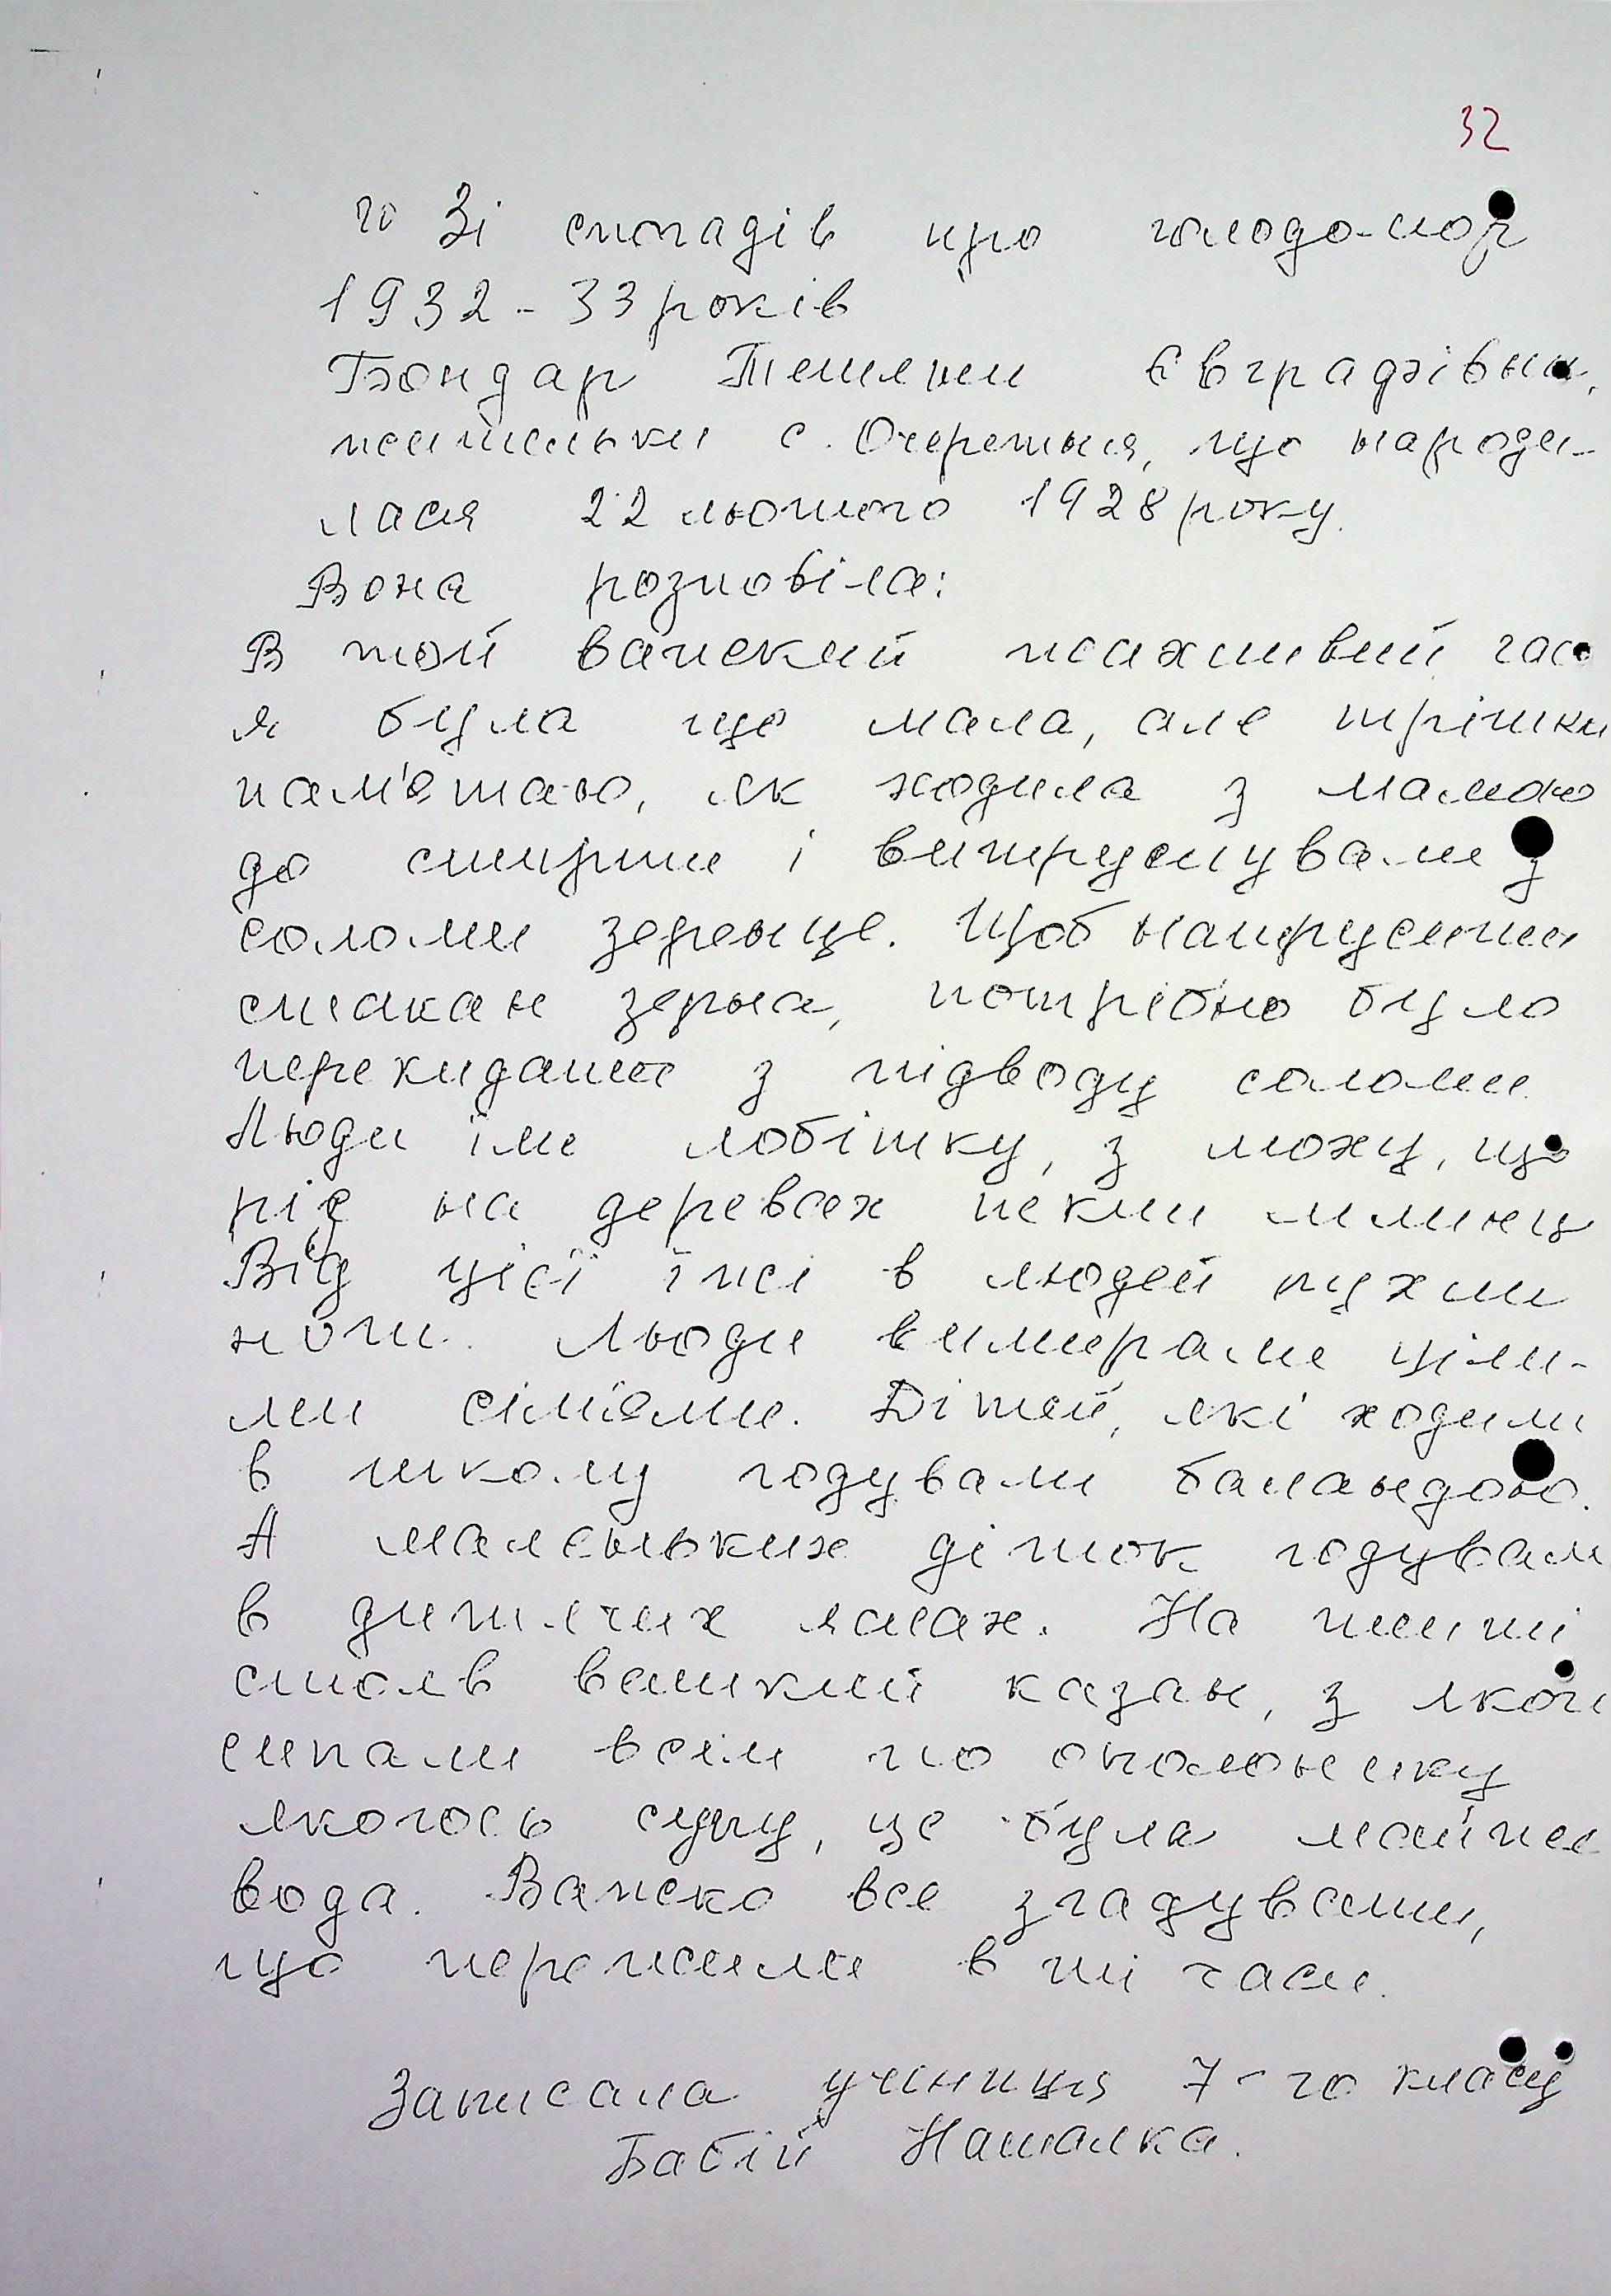 32
го Зі спогадів про голодо-мор
1932 - 33 років
Бондар Євградзівни,
жительки с. Очеретня, що народи-
лася 22 лютого 1928 року.
Вона розповіла:
В той важкий жахливий час
я була ще мала, але трішки
пам'ятаю, як ходила з мамою
до стирти і витрушували з
соломи зеренце. Щоб натрусити
стакан зерна, потрібно було
перекидати з підводу соломи.
Люди їли лобішку, з моху, що
ріс на деревах пекли млинц
Від цієї їжі в людей пухли
ноги. Люди вимирали ціли-
ми сім'ями. Дітей, які ходили
в школу годували баландою.
А маленьких діток годували
в дитячих яслах. На плиті
стояв великий казан, з якого
сипали всім по ополонику
якогось супу, це була майже
вода. Важко все згадувати,
що пережили в ті часи.
Записала учениця 7-го класу
Бабій Наталка.